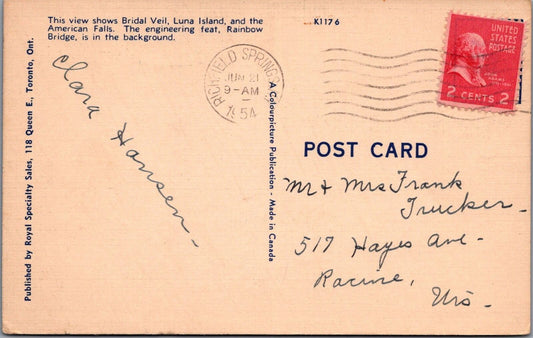 This view shows Bridal Veil, Luna Island, and the
American Falls. The engineering feat, Rainbow
Bridge, is in the background.
K1176
Published by Royal Specialty Sales, 118 Queen E., Toronto, Ont.
Clara Hansen -
RICHFIELD SPRINGS
JUN 21
9-AM
1954
A Colourpicture Publication - Made in Canada
UNITED
STATES
POSTAGE
JOHN
ADAMS
2 CENTS 2
POST CARD
Mr + Mrs Frank
Trucker -
517 Hayes Ave -
Racine,
Wis -